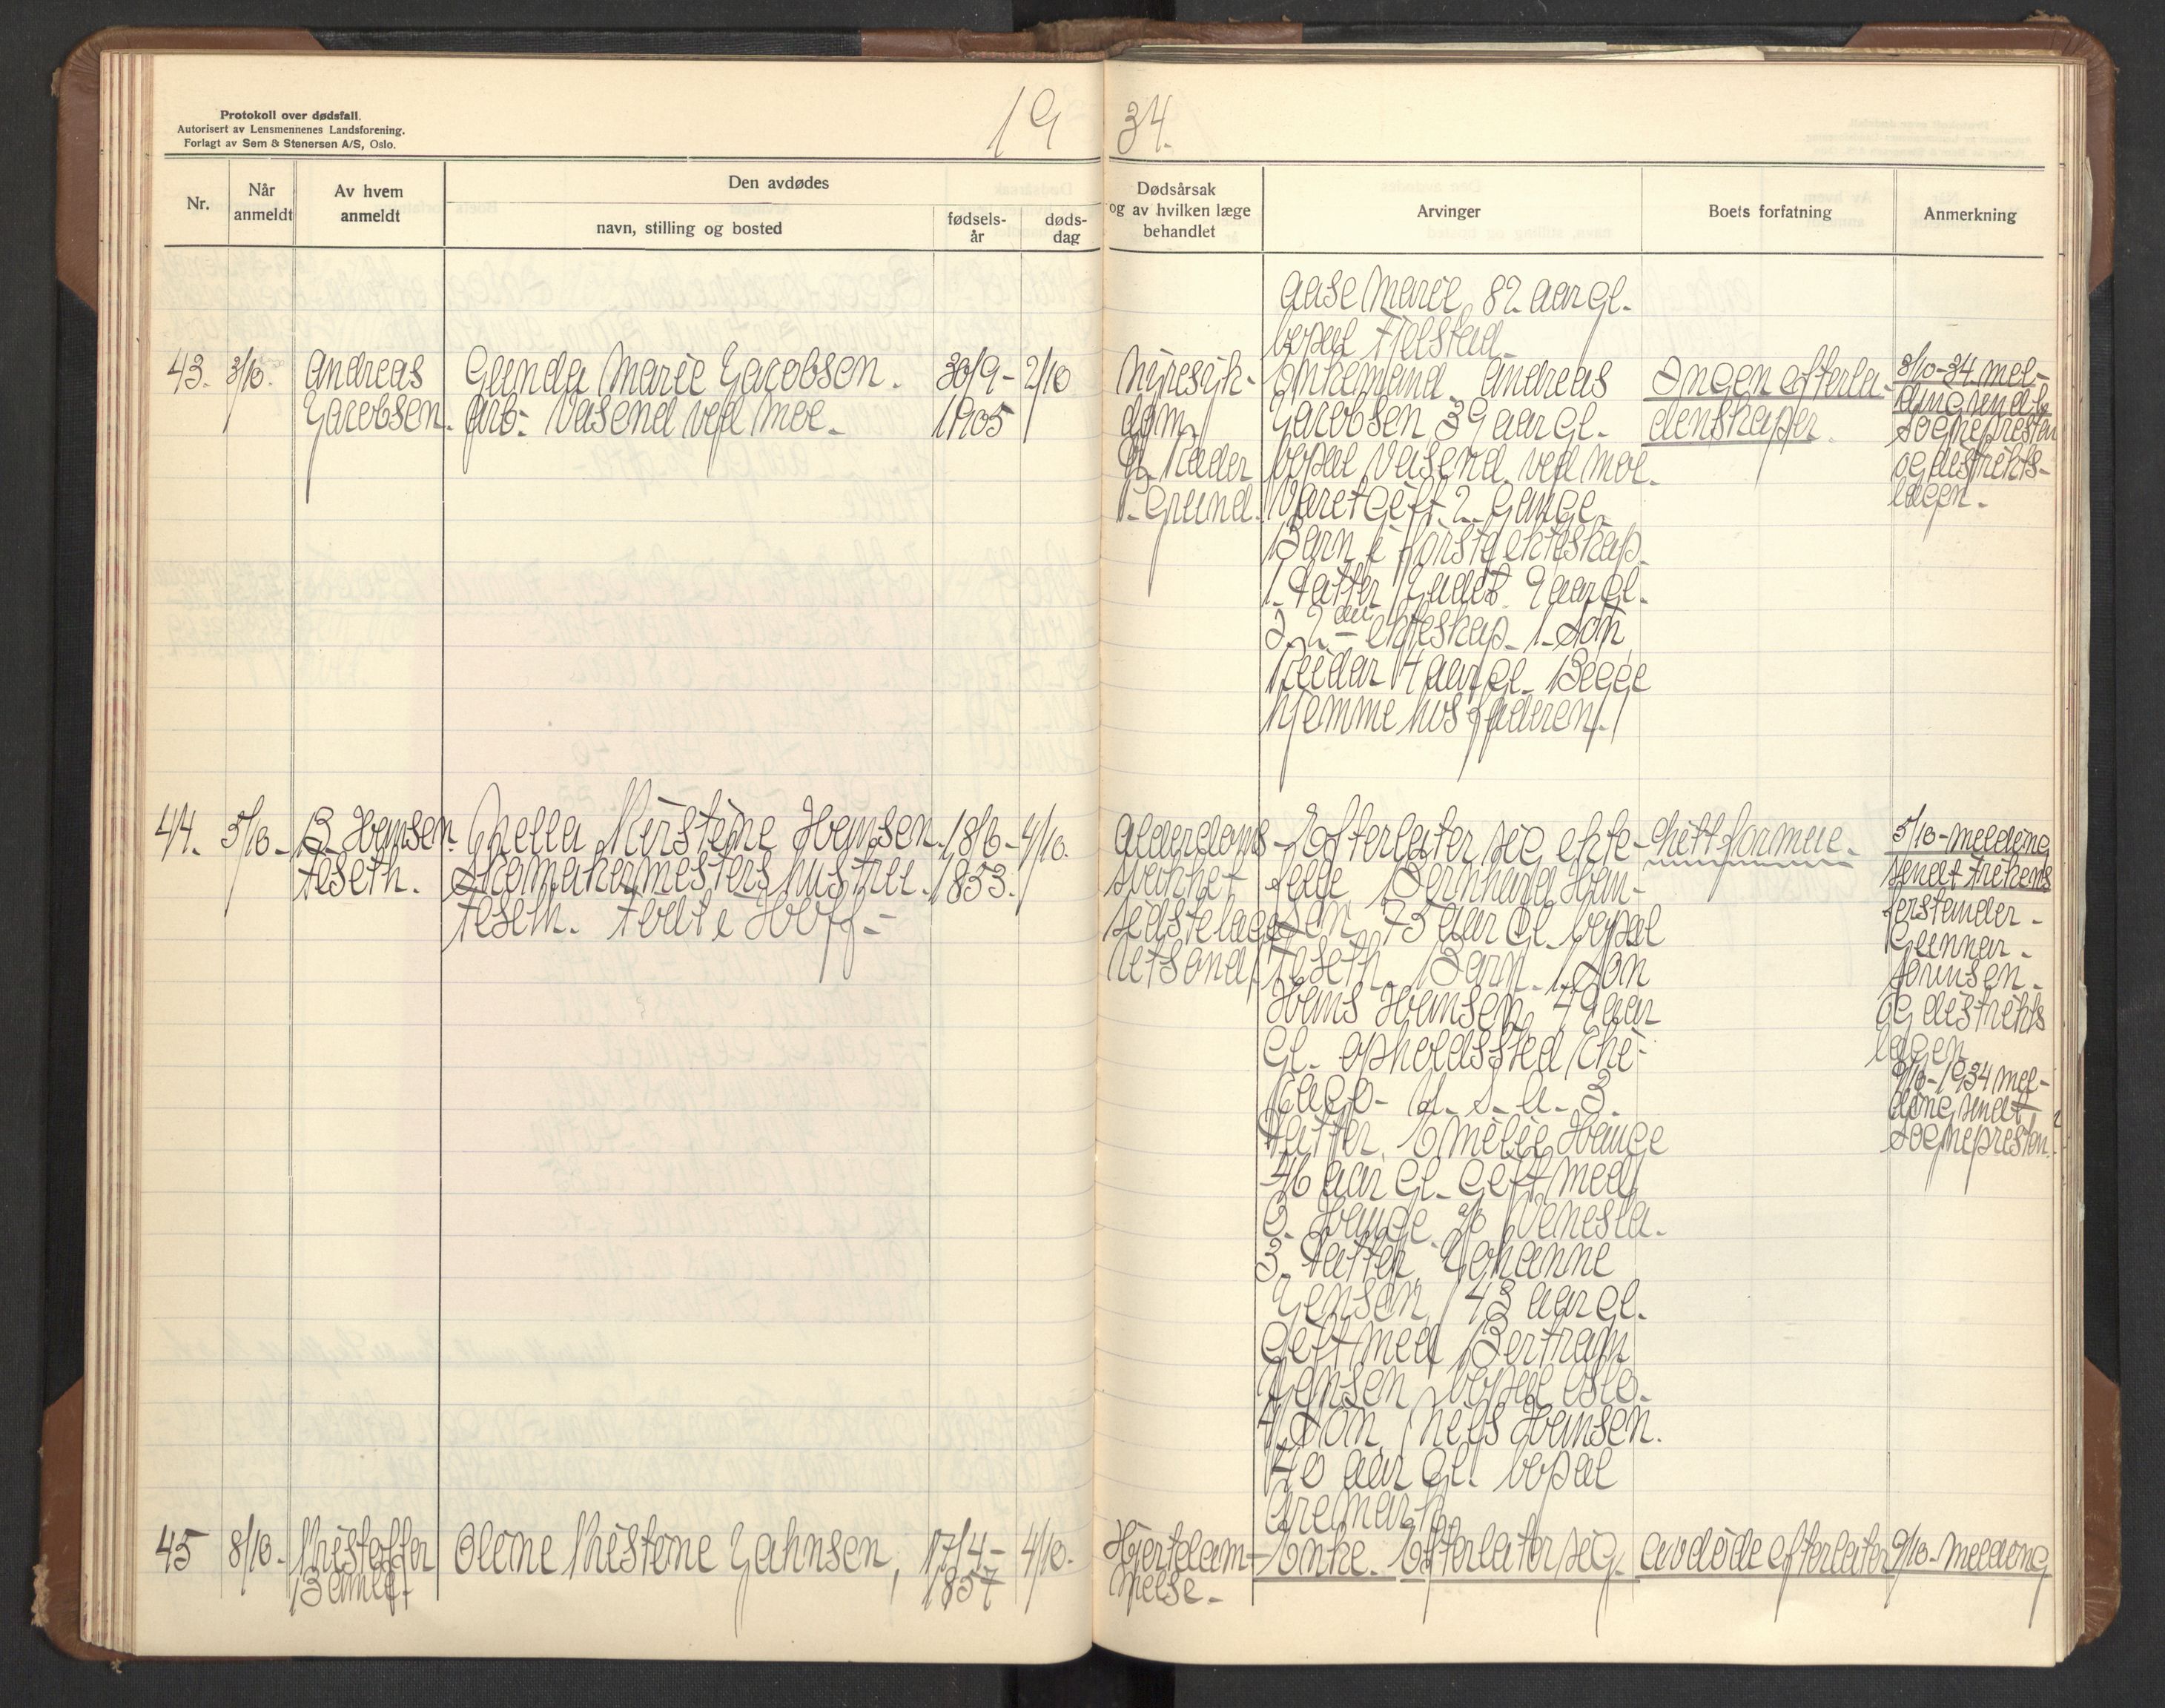 Protokoll over dødsfall.
Autorisert av Lensmennenes Landsforening.
Forlagt av Sem & Stenersen A/S, Oslo.
19 34.
Nr.
Når
anmeldt
Av hvem
anmeldt
Den avdødes
navn, stilling og bosted
fødsels-
år
døds-
dag
Dødsårsak
og av hvilken læge
behandlet
Arvinger
Boets forfatning
Anmerkning
Aase Marie 82 aar gl.
bopæl Fjelstad
43. 3/10. Andreas
Jacobsen.
Gunda Marie Jacobsen.
arb- Vasend ved Moe.
30/9-
1905
2/10
Nyresyk-
dom
Grund.
Enkemand Andreas
Jacobsen 39 aar gl.
bopæl Vasend ved Moe.
Været gift 2 gange.
Barn i første ekteskap
1. datter 9 aar gl.
I 2den ekteskap 1. Søn
Reidar 4 aar gl. Begge
hjemme hos faderen.
Ingen efterla-
denskaper.
3/10-34 mel-
ding sendt
sognepresten
og distrikts-
lægen.
44. 5/10- B. Hansen
Aseth.
Nella Kirstine Hansen.
Skomakermesters hustru.
Aseth. Født i Hoff-
18/6-
1853.
4/10.
Alderdoms
svakhet
sidstelaget
Efterlater sig ekte-
felle Bernhard Han-
sen 75 aar gl. bopæl
Aseth. Barn 1. Søn
Hans Hansen, 49 aar
gl. opholdssted Chi-
cago- U. S. A. 2.
datter Emelie Hauge
46 aar gl. gift med
O. Hauge Venesla.
3. datter Johanne
Jensen 43 aar gl.
gift med Bertram
Jensen bopæl Oslo.
4. Søn Nels Hansen.
40 aar gl. bopæl
Aremark.
Litt formue.
5/10- melding
sendt
forstander-
Gunnar-
og distrikts
lægen
9/10-1934 mel-
ding sendt
sognepresten.
45 8/10- Kristoffer
Oline Kristine Jahnsen,
17/4-
1857
4/10.
Hjertelam-
melse.
Enke. Efterlater sig
avdøde efterlater
9/10- melding